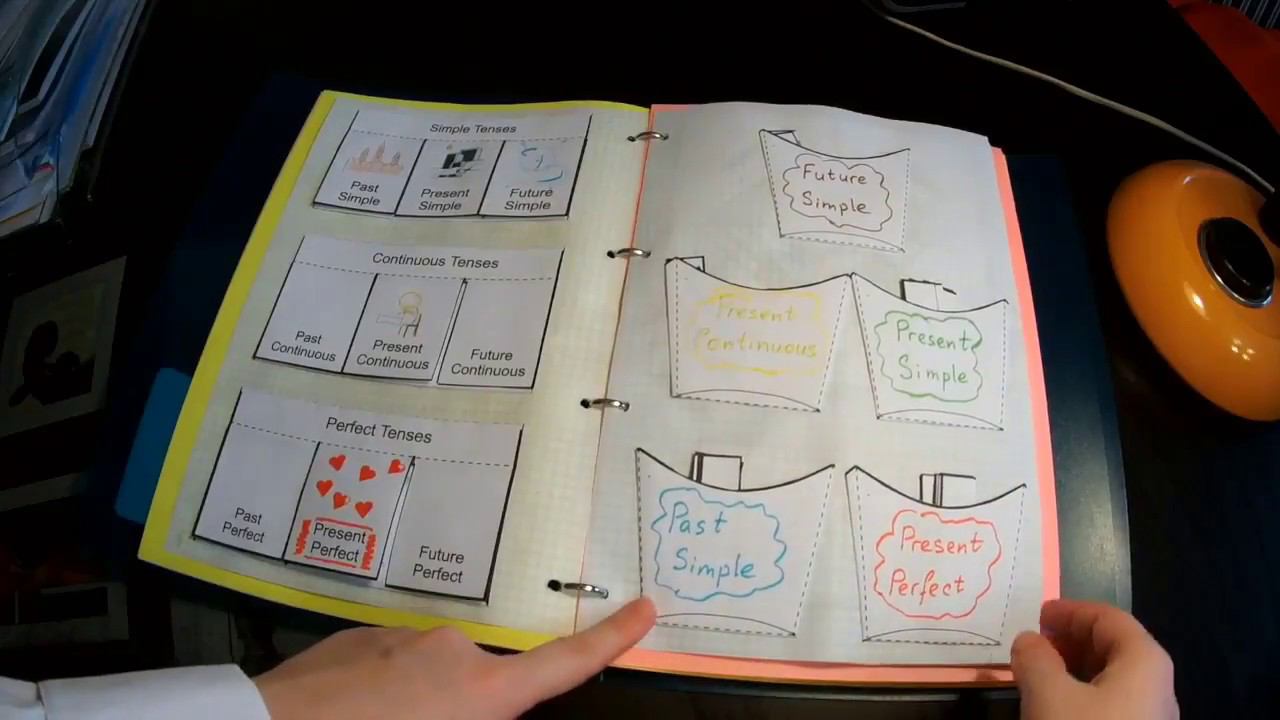 Simple Tenses
Past
Simple
Present
Simple
Future
Simple
Continuous Tenses
Past
Continuous
Present
Continuous
Future
Continuous
Perfect Tenses
Past
Perfect
Present
Perfect
Future
Perfect
Future
Simple
Present
Continuous
Present
Simple
Past
Simple
Present
Perfect